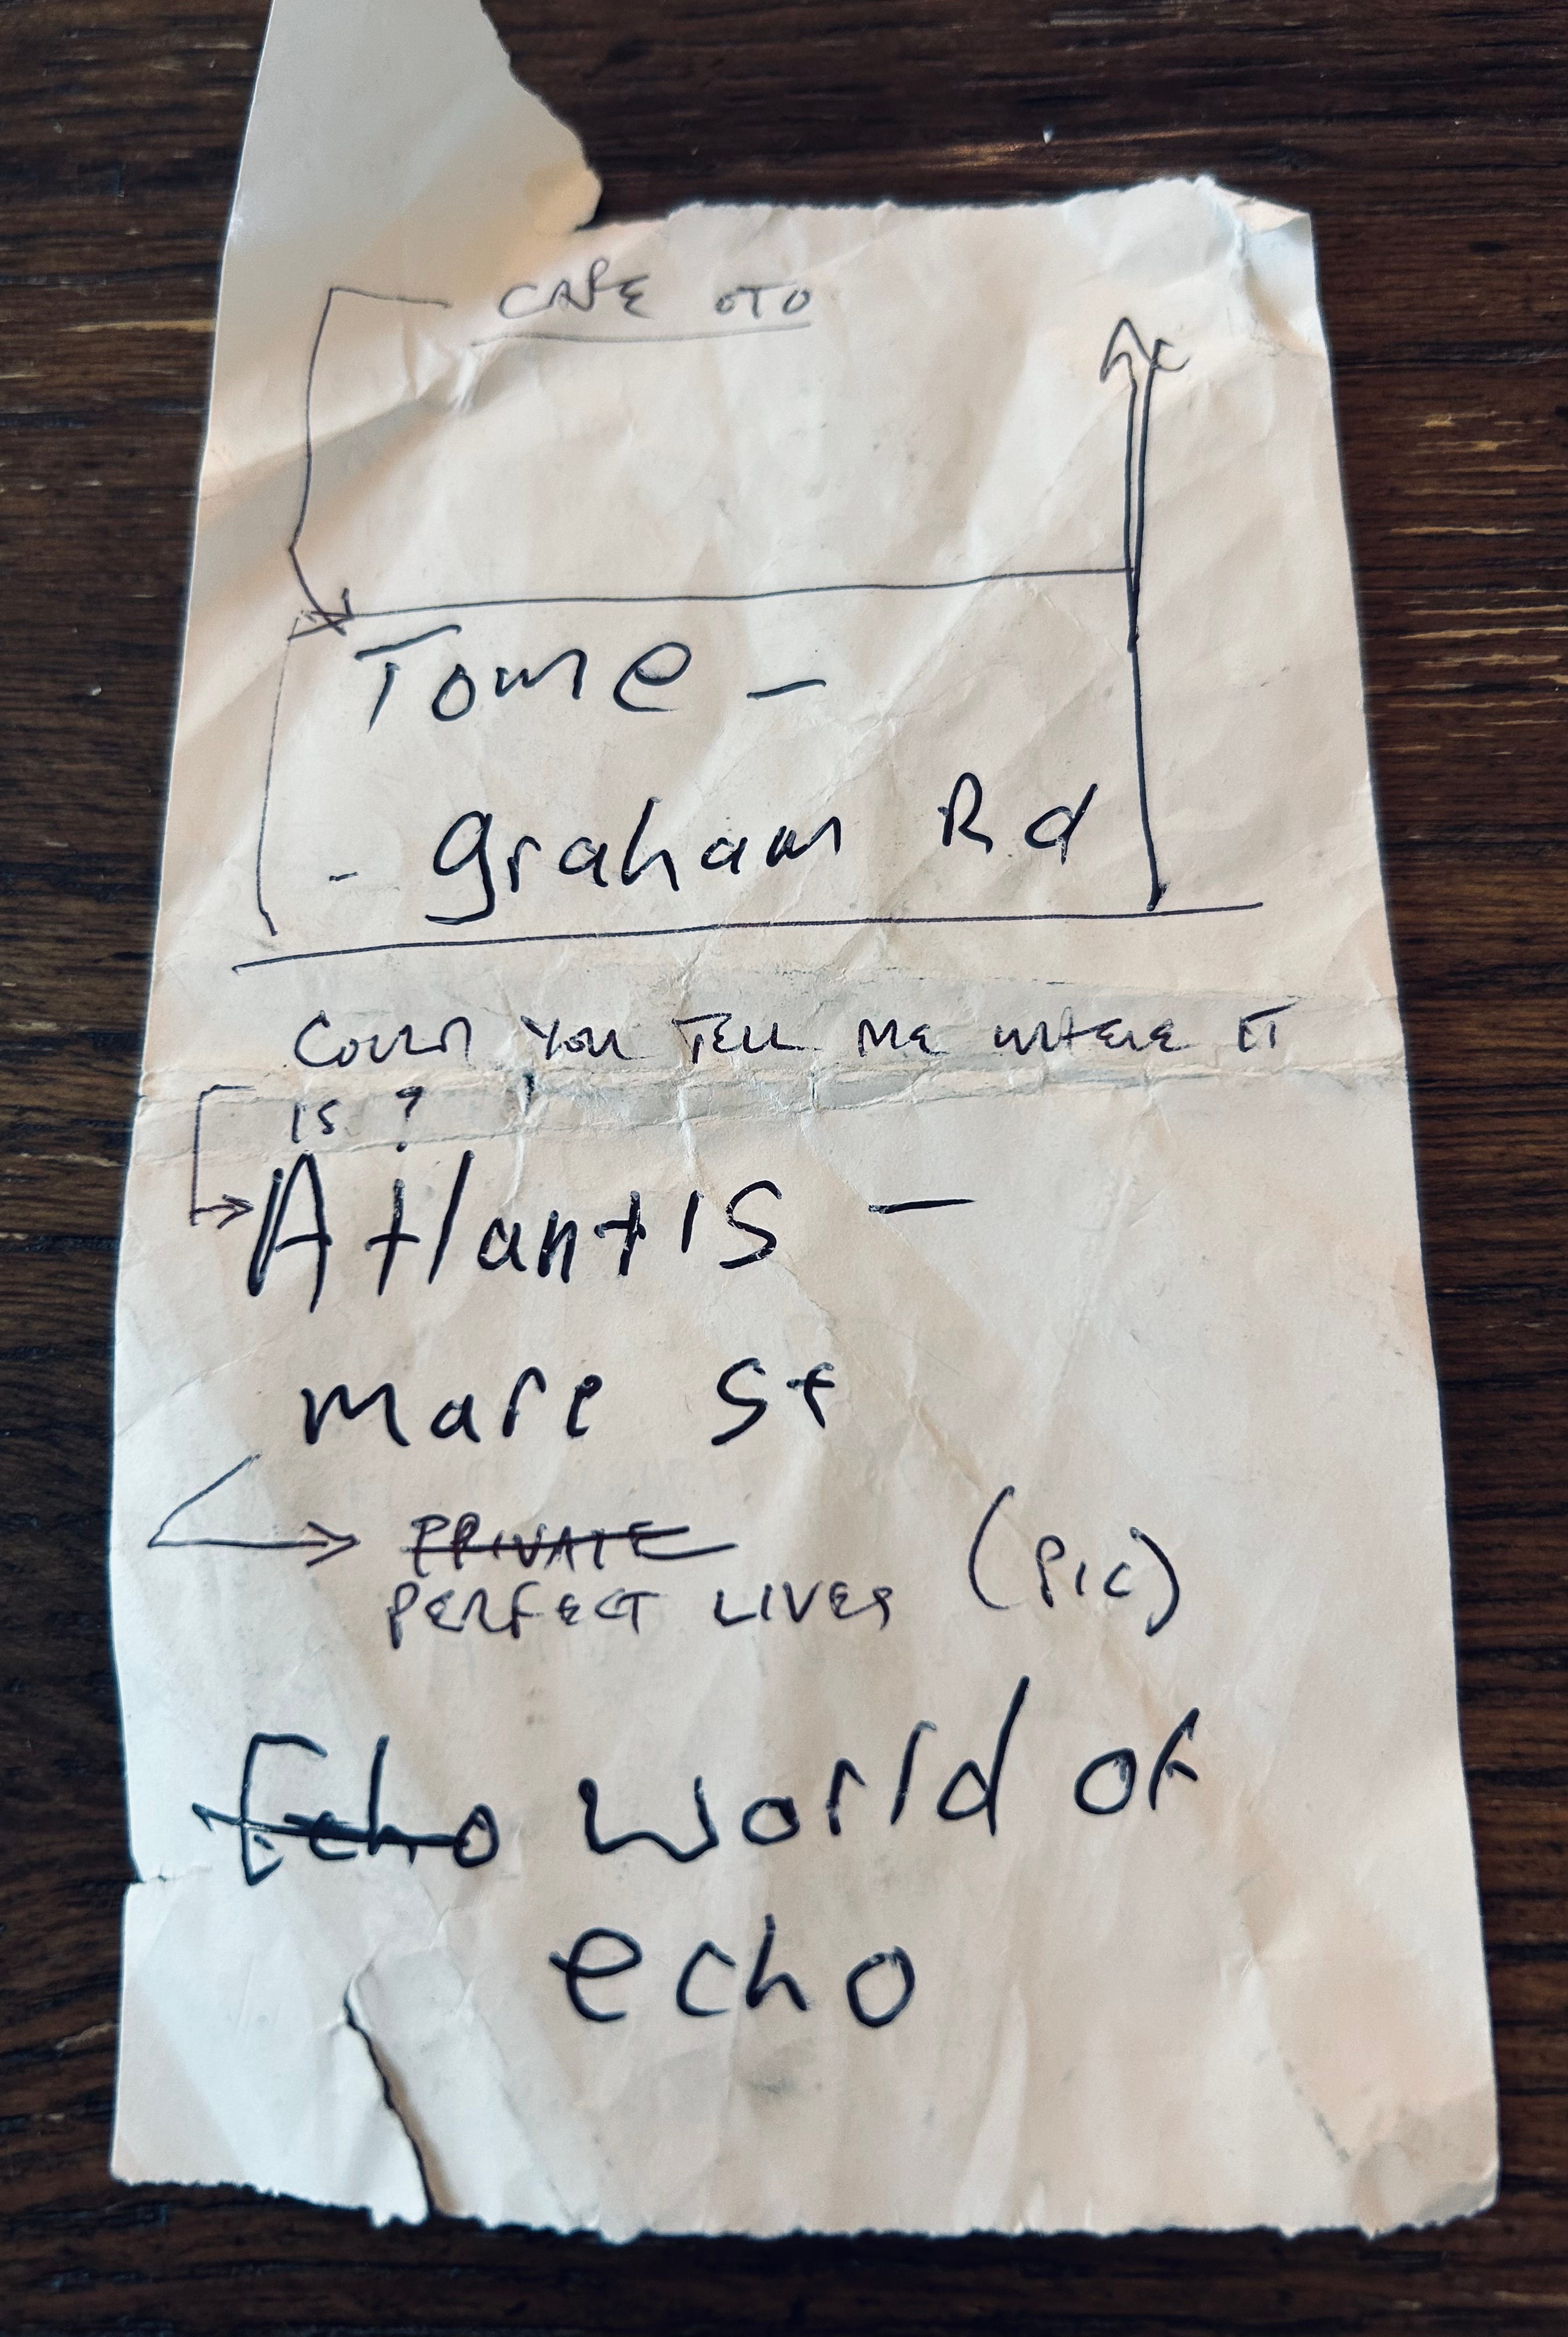 CAFE OTO
Tome -
- Graham Rd
COULD YOU TELL ME WHERE IT
IS ?
Atlantis -
mare St
PRIVATE
PERFECT LIVES (PIC)
Echo world of
echo